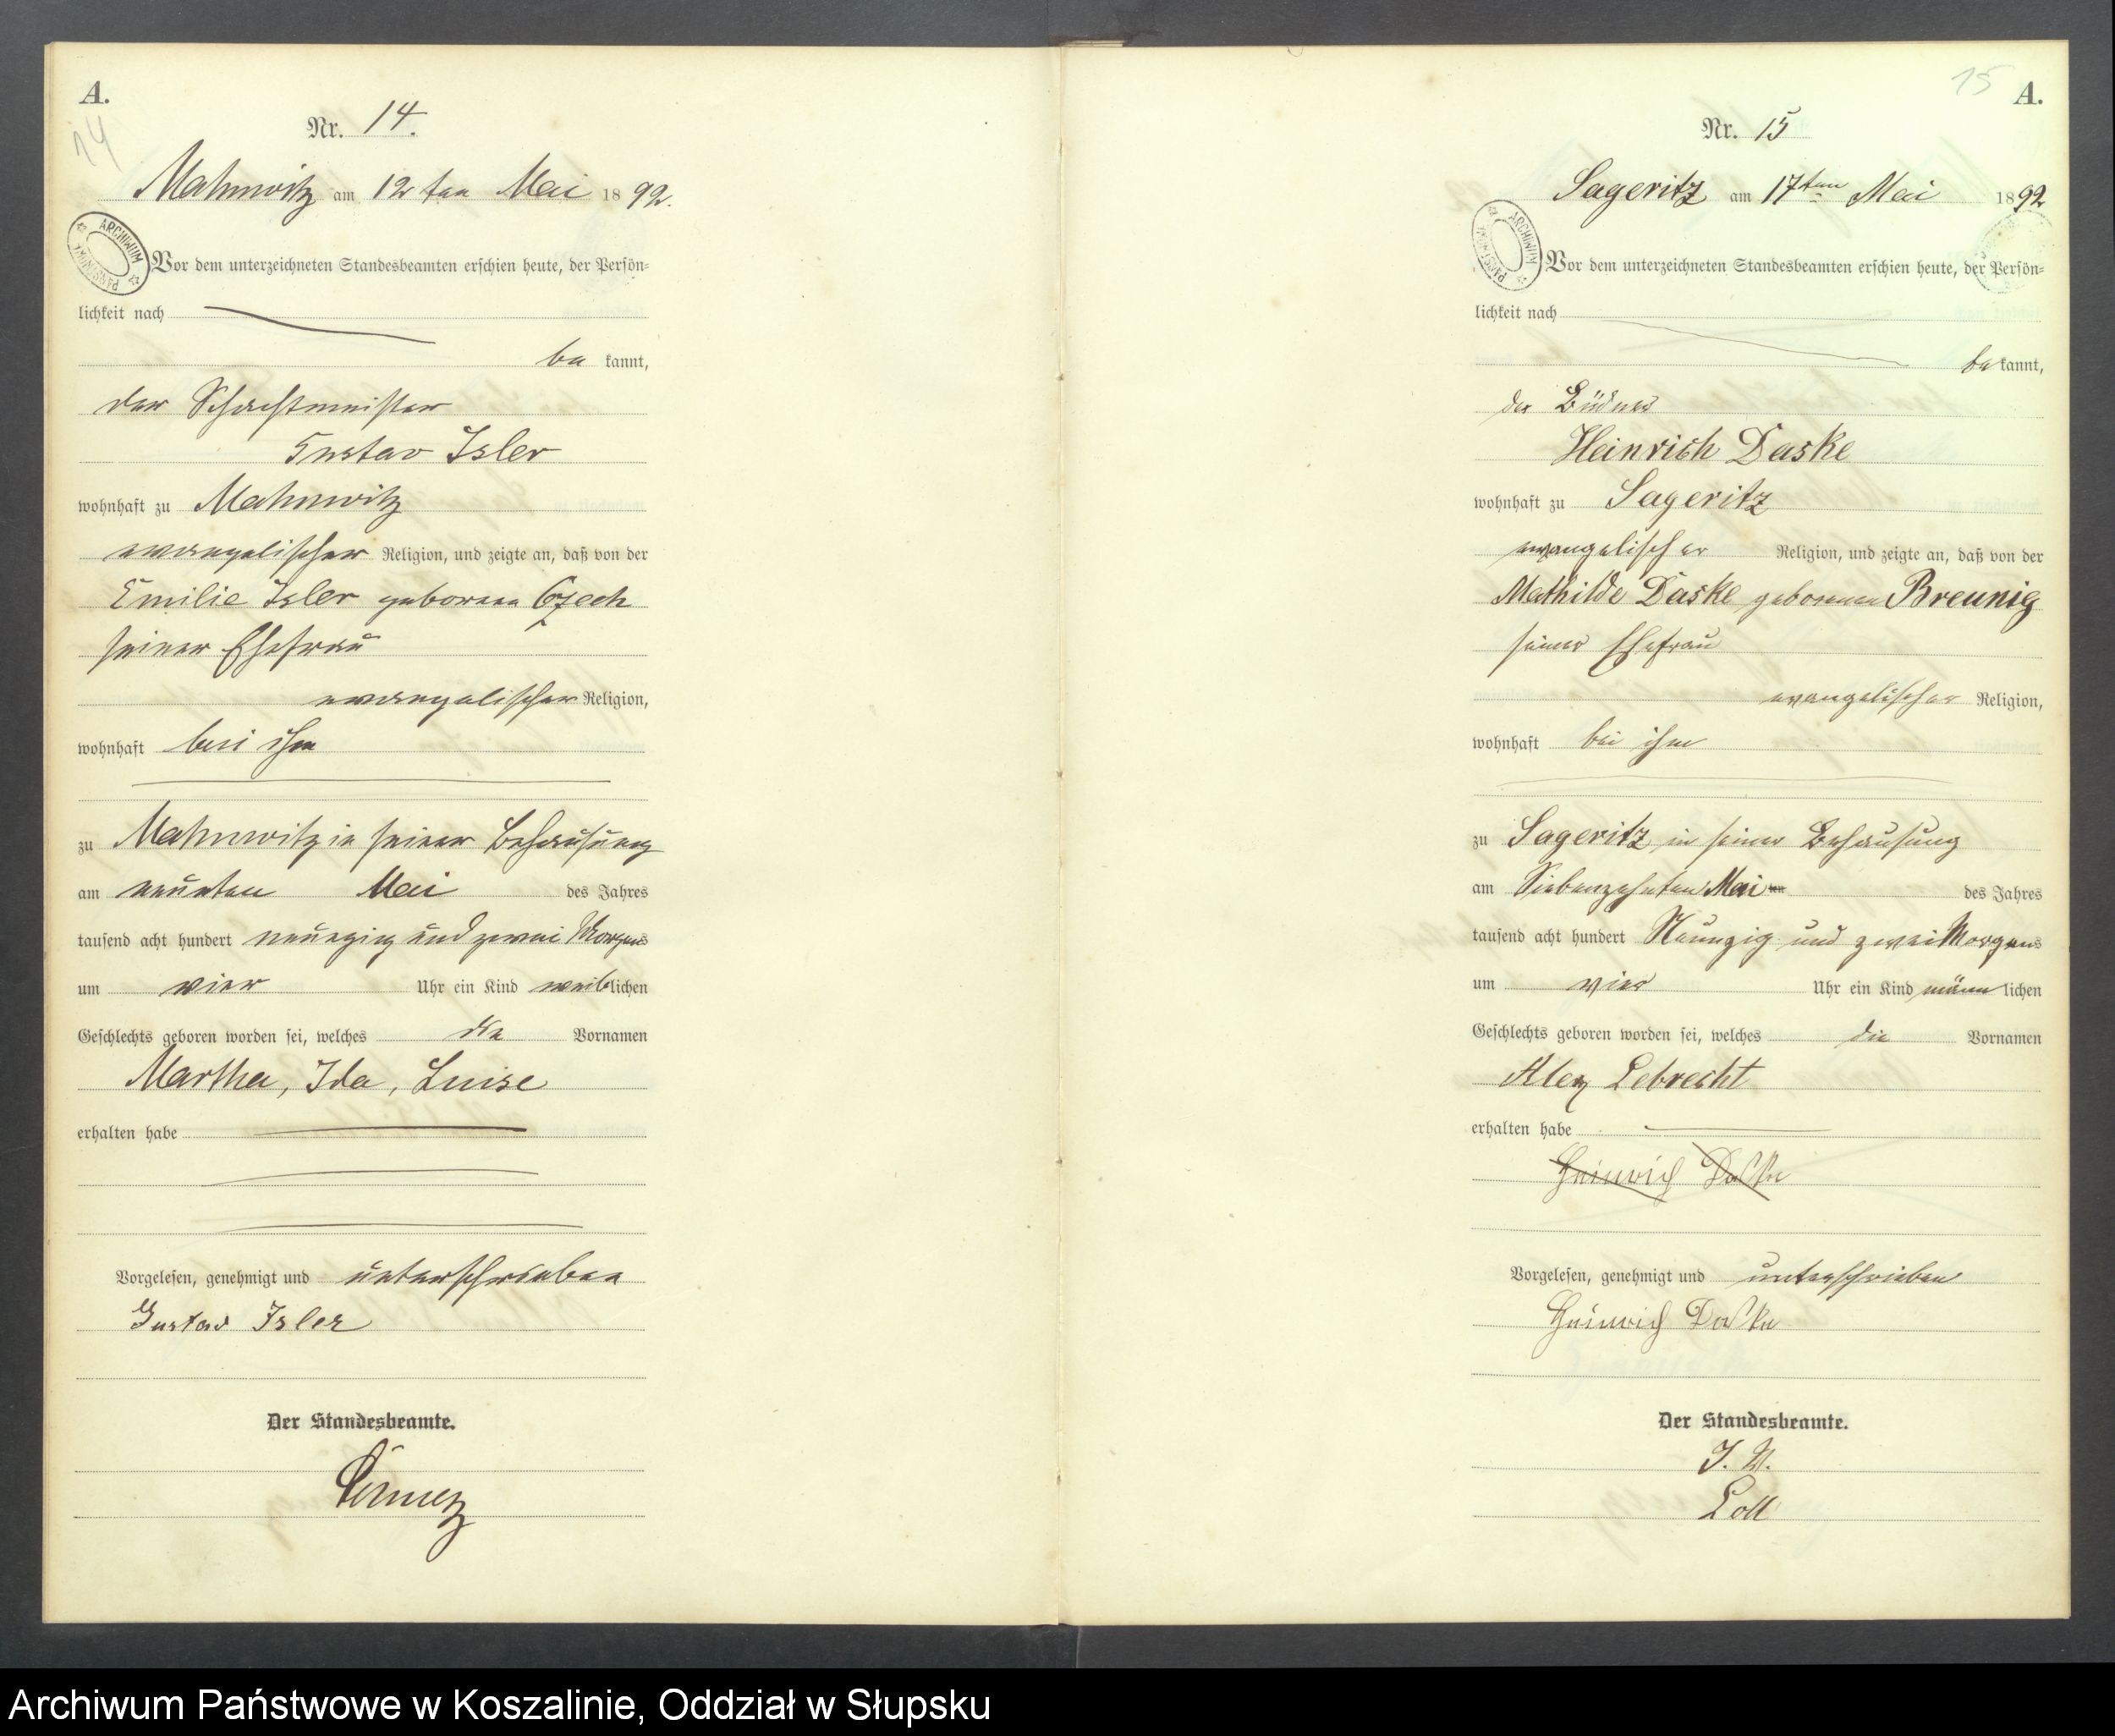 A.
14
Nr. 14.
Mahnwitz am 12ten Mai 1892.
ARCHIWUM PAŃSTWOWE
Vor dem unterzeichneten Standesbeamten erschien heute, der Persön-
lichkeit nach
be kannt,
der Schachtmeister
Gustav Isler
wohnhaft zu Mahnwitz
evangelischer Religion, und zeigte an, daß von der
Emilie Isler geborene Czech
seiner Ehefrau
evangelischer Religion,
wohnhaft bei ihm
zu Mahnwitz in seiner Behausung
am neunten Mai des Jahres
tausend acht hundert neunzig und zwei Morgens
um vier Uhr ein Kind weiblichen
Geschlechts geboren worden sei, welches die Vornamen
Martha, Ida, Luise
erhalten habe
Vorgelesen, genehmigt und unterschrieben
Gustav Isler
Der Standesbeamte.
15
A.
Nr. 15
Sageritz am 17ten Mai 1892
ARCHIWUM PAŃSTWOWE
Vor dem unterzeichneten Standesbeamten erschien heute, der Persön-
lichkeit nach
be kannt,
der Büdner
Heinrich Daske
wohnhaft zu Sageritz
evangelischer Religion, und zeigte an, daß von der
Mathilde Daske geborenen Breunig
seiner Ehefrau
evangelischer Religion,
wohnhaft bei ihm
zu Sageritz in seiner Behausung
am Siebenzehnten Mai des Jahres
tausend acht hundert Neunzig und zwei Morgens
um vier Uhr ein Kind männlichen
Geschlechts geboren worden sei, welches die Vornamen
Alex Lebrecht
erhalten habe
Heinrich Daske
Vorgelesen, genehmigt und unterschrieben
Heinrich Daske
Der Standesbeamte.
J. V.
Loll
Archiwum Państwowe w Koszalinie, Oddział w Słupsku